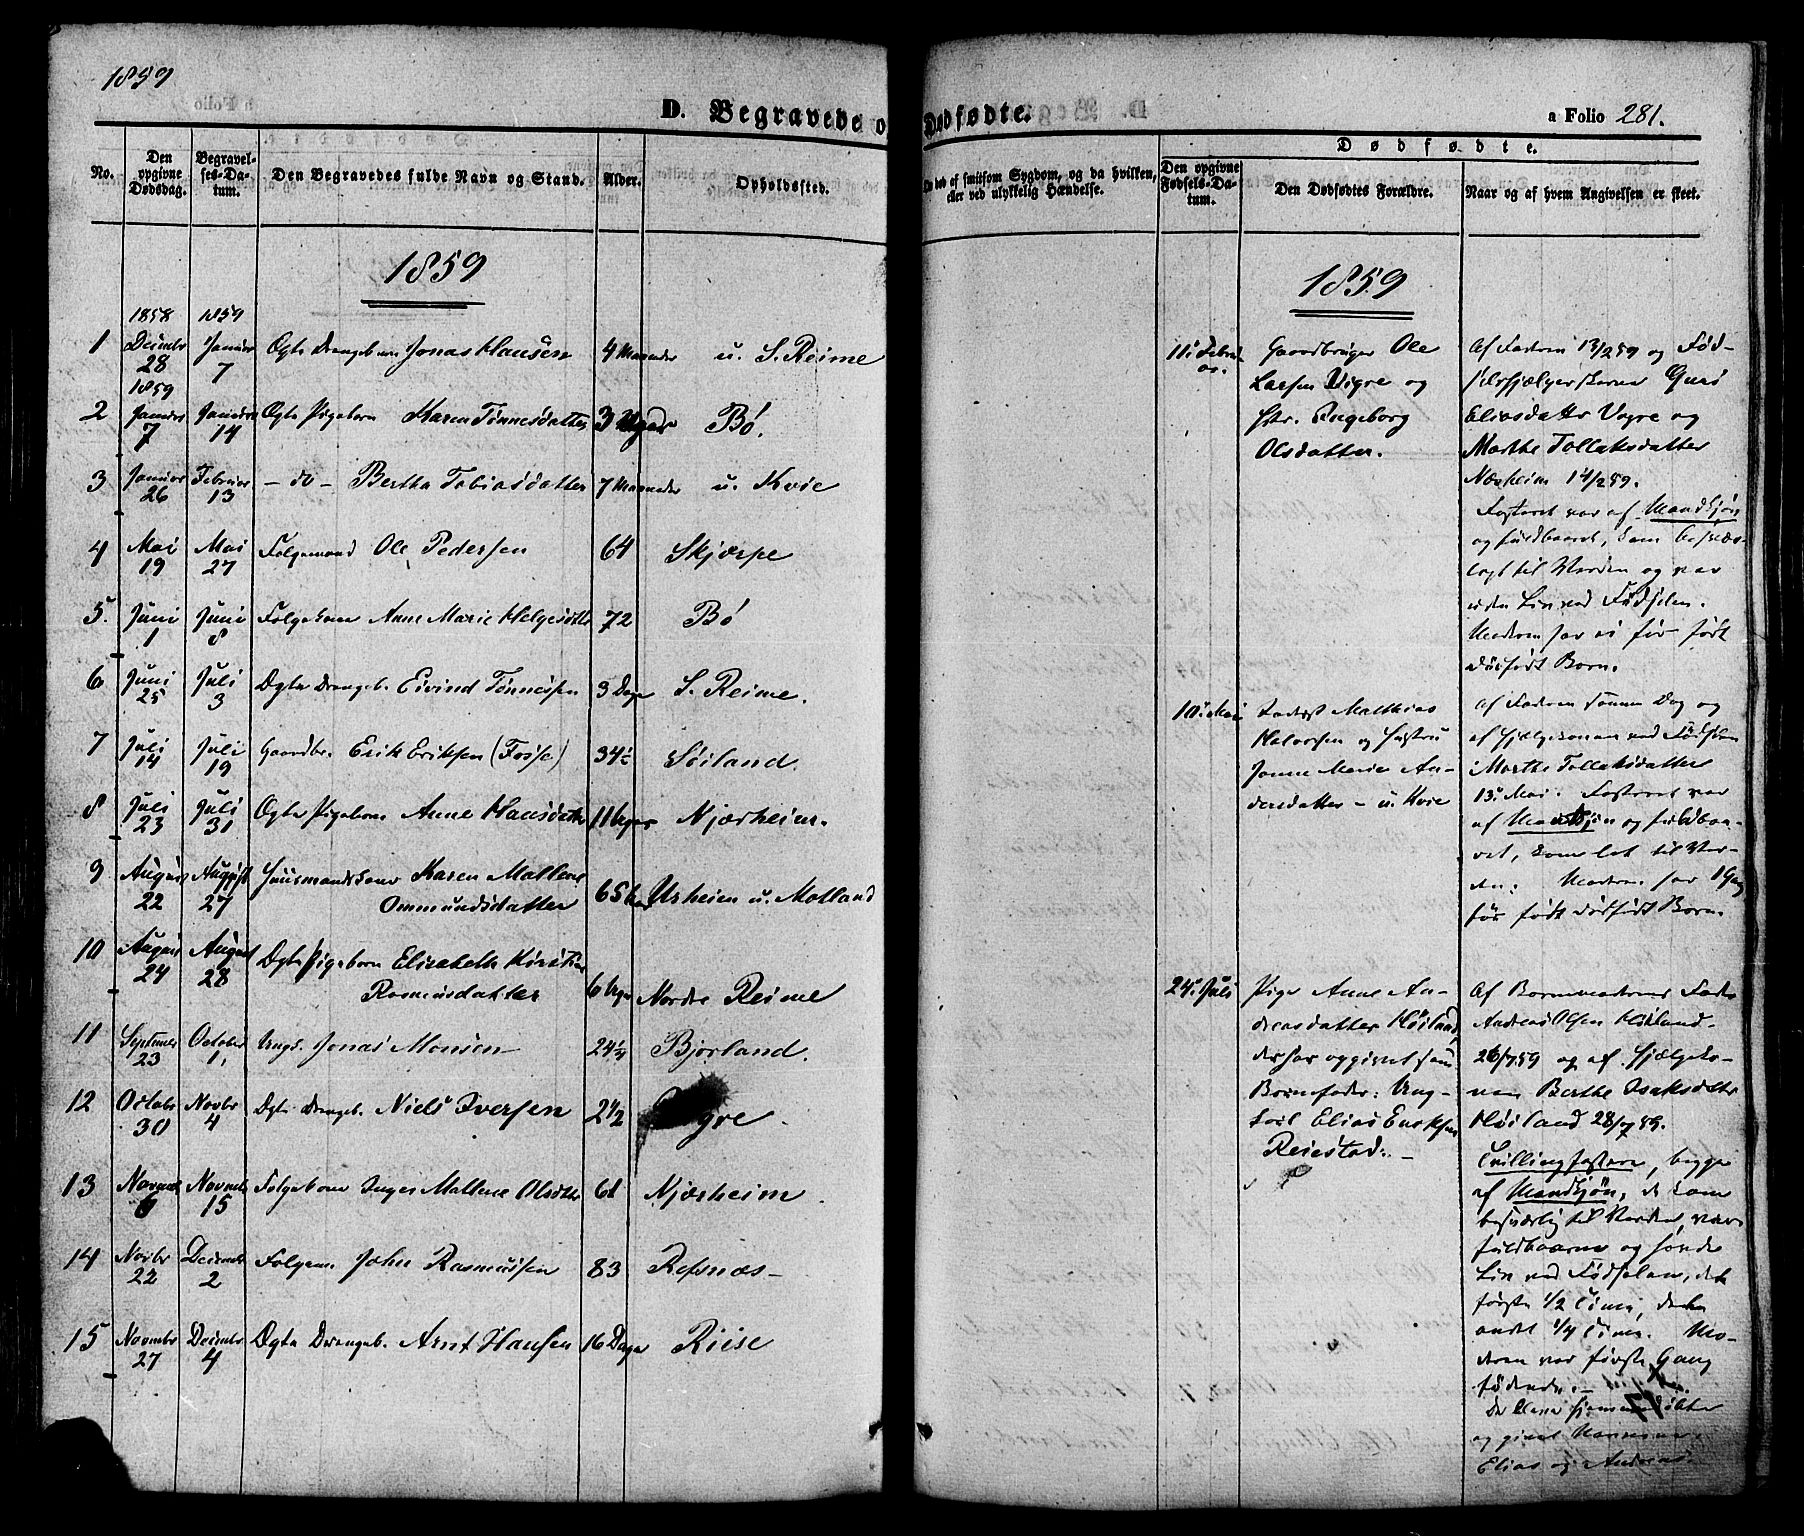 1859
D. Begravede o
No.
Den opgivne Dødsdag.
Begravel-ses-Da-tum.
Den Begravedes fulde Navn og Stand.
Alder.
Opholdssted.
1859
1858 1859
1 Decembr 28 Januar 7 Ægte Drengebarn Jonas Hansen 4 Maaneder u. S. Reime
1859
2 Januar 7 Januar 14 Ægte Pigebarn Karen Tønnesdatter 3 Uger Bø.
3 Januar 26 Februar 13 – do – Bertha Tobiasdatter 7 Maaneder u. Kvie
4 Mai 19 Mai 27 Følgemand Ole Pedersen 64 Skjærpe
5. Juni 1 Juni 8 Følgekone Anne Marie Helgesdttr 72 Bø
6 Juni 25 Juli 3 Ægte Drengeb. Eivind Tønnessen 3 Dage S. Reime.
7 Juli 14 Juli 19 Gaardbr. Erik Eriksen (Fosse) 34½ Søiland.
8 Juli 23 Juli 31 Ægte Pigebarn Anne Hansdatter 11 Uger Njærheim.
9 August 22 August 27 Huusmandskone Karen Mallene
Ommundsdatter 65 Urheien u. Motland
10 August 24 August 28 Ægte Pigebarn Elisabeth
Rasmusdatter 6 Uger Nordre Reime
11 September 23 October 1, Ungk. Jonas Monsen 24¼ Bjorland.
12 Octobr 30 Novbr 4 Ægte Drengeb. Niels Iversen 2½
13 Novembr 6 Novembr 15 Følgekone Inger Mallene Olsdttr 61 Njærheim
14 Novbr 22 December 2 Følgem. John Rasmussen 83 Refsnæs –
15 Novembr 27 Decembr 4 Ægte Drengeb. Arnt Hansen 16 Dage Riise
Dødfødte.
a Folio 281.
død af smitsom Sygdom, og da hvilken,
eller ved ulykkelig Hændelse.
Dødfødte.
Den opgivne Fødsels-Da-tum.
Den Dødfødtes Forældre.
Naar og af hvem Angivelsen er skeet.
1859
11. Februar
Gaardbruger Ole
Larsen Vigre og
Hstr. Ingeborg
Olsdatter.
Af Faderen 13/2 59 og Fød-
selshjælperskerne Guri
Eliasdatter Vigre og
Marthe Tollaksdatter
Nærheim 14/2 59.
Fosteret var af Mandkjøn
og fuldbaaret, kom besvær-
ligt til Verden og var
uden Liv ved Fødselen.
Moderen har ei før født
dødfødt Barn.
10. Mai
Matthias
Halvorsen og Hustru
Janne Marie An-
dersdatter – u. Kvie
Af Faderen samme Dag og
af Hjælpekonen ved Fødselen
Marthe Tollaksdatter
13. Mai. Fosteret var
af Mandkjøn og fuldbaa-
ret, kom let til Ver-
den. Moderen har 1 Gang
før født dødfødt Barn.
24. Juli
Pige Anne An-
dreasdatter Høiland,
der har opgivet som
Barnefader: Ung-
karl Elias Eriksen
Reiestad. –
Af Barnemoderens Fader
Andreas Olsen Høiland
26/7 59 og af Hjælpeko-
nen Berthe Isaksdttr
Høiland 28/7 59.
Tvillingfostere, begge
af Mandkjøn, de kom
besværlig til Verden, vare
fuldbaarne og havde
Liv ved Fødselen, det
første ½ Time, det
andet ¼ Time. Mo-
deren var første Gang
fødende. –
De bleve hjemmedøbte
og givet Navnene
Elias og Andreas.